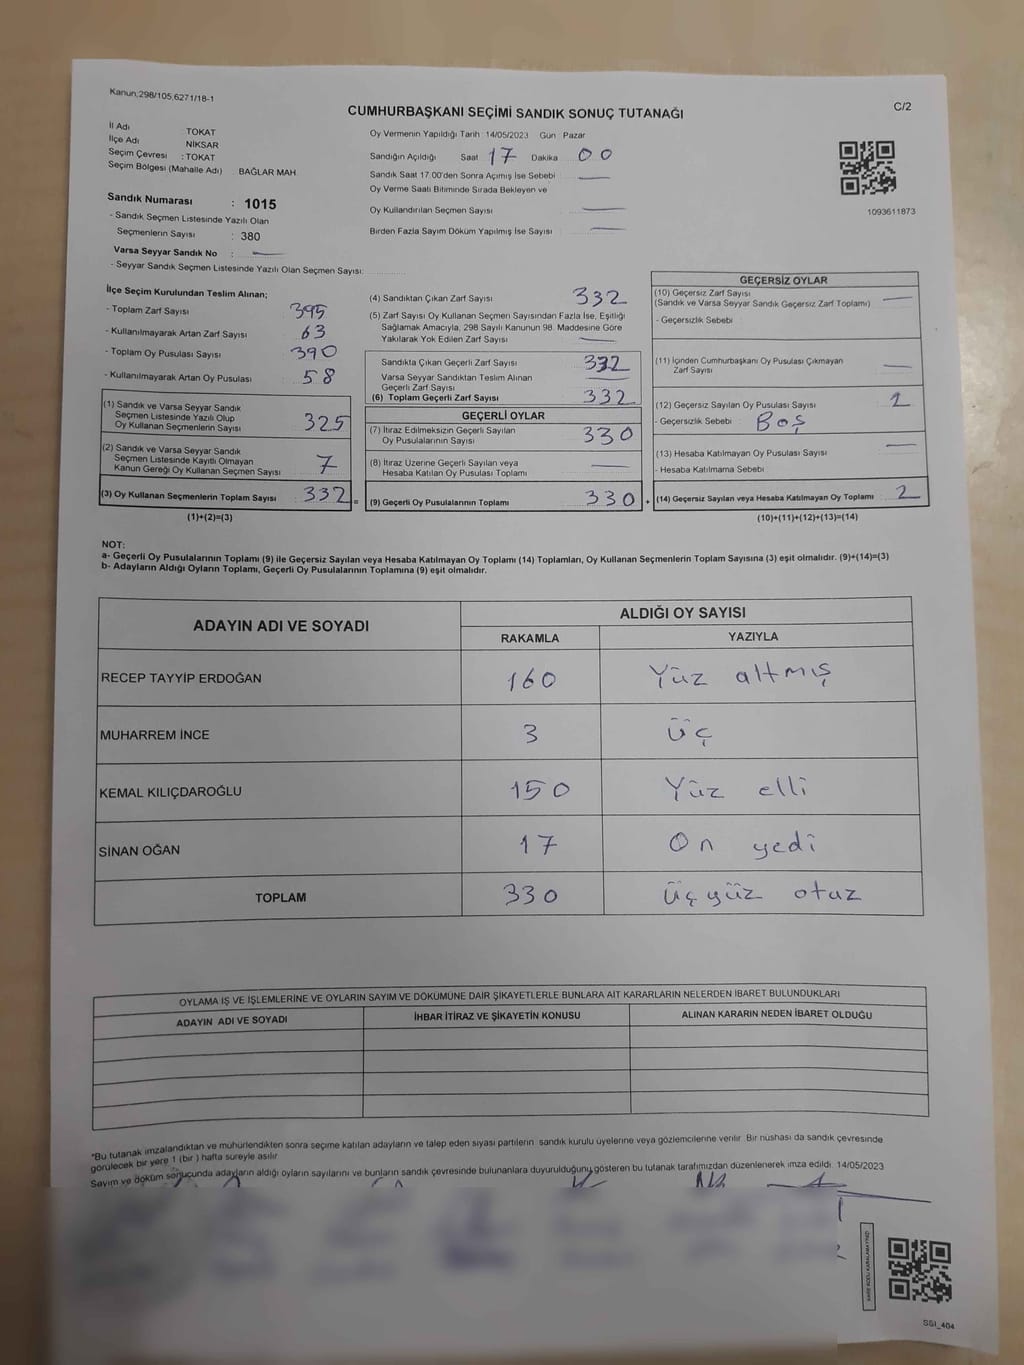 Kanun;298/105,6271/18-1
CUMHURBAŞKANI SEÇİMİ SANDIK SONUÇ TUTANAĞI
C/2
İl Adı TOKAT
İlçe Adı NİKSAR
Seçim Çevresi : TOKAT
Seçim Bölgesi (Mahalle Adı) BAĞLAR MAH.
Sandık Numarası : 1015
- Sandık Seçmen Listesinde Yazılı Olan
Seçmenlerin Sayısı : 380
Varsa Seyyar Sandık No :
- Seyyar Sandık Seçmen Listesinde Yazılı Olan Seçmen Sayısı:
Oy Vermenin Yapıldığı Tarih 14/05/2023 Gün Pazar
Sandığın Açıldığı Saat 17 Dakika 00
Sandık Saat 17.00'den Sonra Açımış İse Sebebi
Oy Verme Saati Bitiminde Sırada Bekleyen ve
Oy Kullandırılan Seçmen Sayısı
Birden Fazla Sayım Döküm Yapılmış İse Sayısı
1093611873
İlçe Seçim Kurulundan Teslim Alınan;
- Toplam Zarf Sayısı 395
- Kullanılmayarak Artan Zarf Sayısı 63
- Toplam Oy Pusulası Sayısı 390
- Kullanılmayarak Artan Oy Pusulası 58
(1) Sandık ve Varsa Seyyar Sandık
Seçmen Listesinde Yazılı Olup
Oy Kullanan Seçmenlerin Sayısı 325
(2) Sandık ve Varsa Seyyar Sandık
Seçmen Listesinde Kayıtlı Olmayan
Kanun Gereği Oy Kullanan Seçmen Sayısı 7
(3) Oy Kullanan Seçmenlerin Toplam Sayısı 332 =
(1)+(2)=(3)
(4) Sandıktan Çıkan Zarf Sayısı 332
(5) Zarf Sayısı Oy Kullanan Seçmen Sayısından Fazla İse, Eşitliği
Sağlamak Amacıyla, 298 Sayılı Kanunun 98. Maddesine Göre
Yakılarak Yok Edilen Zarf Sayısı
Sandıkta Çıkan Geçerli Zarf Sayısı 332
Varsa Seyyar Sandıktan Teslim Alınan
Geçerli Zarf Sayısı
(6) Toplam Geçerli Zarf Sayısı 332
GEÇERLİ OYLAR
(7) İtiraz Edilmeksizin Geçerli Sayılan
Oy Pusulalarının Sayısı 330
(8) İtiraz Üzerine Geçerli Sayılan veya
Hesaba Katılan Oy Pusulası Toplamı
(9) Geçerli Oy Pusulalarının Toplamı 330 +
GEÇERSİZ OYLAR
(10) Geçersiz Zarf Sayısı
(Sandık ve Varsa Seyyar Sandık Geçersiz Zarf Toplamı)
- Geçersizlik Sebebi :
(11) İçinden Cumhurbaşkanı Oy Pusulası Çıkmayan
Zarf Sayısı
(12) Geçersiz Sayılan Oy Pusulası Sayısı 2
- Geçersizlik Sebebi : Boş
(13) Hesaba Katılmayan Oy Pusulası Sayısı
- Hesaba Katılmama Sebebi
(14) Geçersiz Sayılan veya Hesaba Katılmayan Oy Toplamı 2
(10)+(11)+(12)+(13)=(14)
NOT:
a- Geçerli Oy Pusulalarının Toplamı (9) ile Geçersiz Sayılan veya Hesaba Katılmayan Oy Toplamı (14) Toplamları, Oy Kullanan Seçmenlerin Toplam Sayısına (3) eşit olmalıdır. (9)+(14)=(3)
b- Adayların Aldığı Oyların Toplamı, Geçerli Oy Pusulalarının Toplamına (9) eşit olmalıdır.
ADAYIN ADI VE SOYADI
ALDIĞI OY SAYISI
RAKAMLA YAZIYLA
RECEP TAYYİP ERDOĞAN 160 Yüz altmış
MUHARREM İNCE 3 üç
KEMAL KILIÇDAROĞLU 150 Yüz elli
SİNAN OĞAN 17 On yedi
TOPLAM 330 üçyüz otuz
OYLAMA İŞ VE İŞLEMLERİNE VE OYLARIN SAYIM VE DÖKÜMÜNE DAİR ŞİKAYETLERLE BUNLARA AİT KARARLARIN NELERDEN İBARET BULUNDUKLARI
ADAYIN ADI VE SOYADI İHBAR İTİRAZ VE ŞİKAYETİN KONUSU ALINAN KARARIN NEDEN İBARET OLDUĞU
*Bu tutanak imzalandıktan ve mühürlendikten sonra seçime katılan adayların ve talep eden siyasi partilerin sandık kurulu üyelerine veya gözlemcilerine verilir. Bir nüshası da sandık çevresinde
görülecek bir yere 1 (bir ) hafta süreyle asılır
Sayım ve döküm sonucunda adayların aldığı oyların sayılarını ve bunların sandık çevresinde bulunanlara duyurulduğunu gösteren bu tutanak tarafımızdan düzenlenerek imza edildi. 14/05/2023
SSI_404